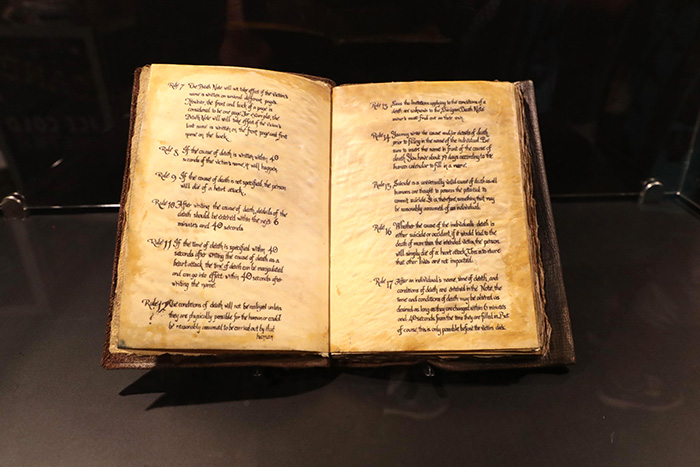 Rule 7 The Death Note will not take effect if the victim's
name is written on several different pages.
However, the front and back of a page is
considered to be one page. For example, the
Death Note will still take effect if the victim's
last name is written on the front page and first
name on the back.
Rule 8 If the cause of death is written within 40
seconds of the victim's name, it will happen.
Rule 9 If the cause of death is not specified, the person
will die of a heart attack.
Rule 10 After writing the cause of death, details of the
death should be entered within the next 6
minutes and 40 seconds
Rule 11 If the time of death is specified within 40
seconds after writing the cause of death as a
heart attack, the time of death can be manipulated
and can go into effect within 40 seconds after
writing the name.
Rule 12 The conditions of death will not be realized unless
they are physically possible for the human or could
be reasonably assumed to be carried out by that
human
Rule 13 Since the limitations applying to the conditions of a
death are unknown to the Shinigami, Death Note
owner's must find out on their own.
Rule 14 You may write the cause and/or details of death
prior to filling in the name of the individual. Be
sure to insert the name in front of the cause of
death. You have about 19 days according to the
human calendar to fill in a name.
Rule 15 Suicide is a universally valid cause of death as all
humans are thought to possess the potential to
commit suicide. It is, therefore, something that may
be reasonably assumed of an individual.
Rule 16 Whether the cause of the individual's death is
either suicide or accident, if it would lead to the
death of more than the intended victim, the person
will simply die of a heart attack. This is to ensure
that other lives are not impacted.
Rule 17 After an individual's name, time of death, and
conditions of death are entered in the Note, the
time and conditions of death may be altered as
desired as long as they are changed within 6 minutes
and 40 seconds from the time they are filled in. But
of course, this is only possible before the victim dies.